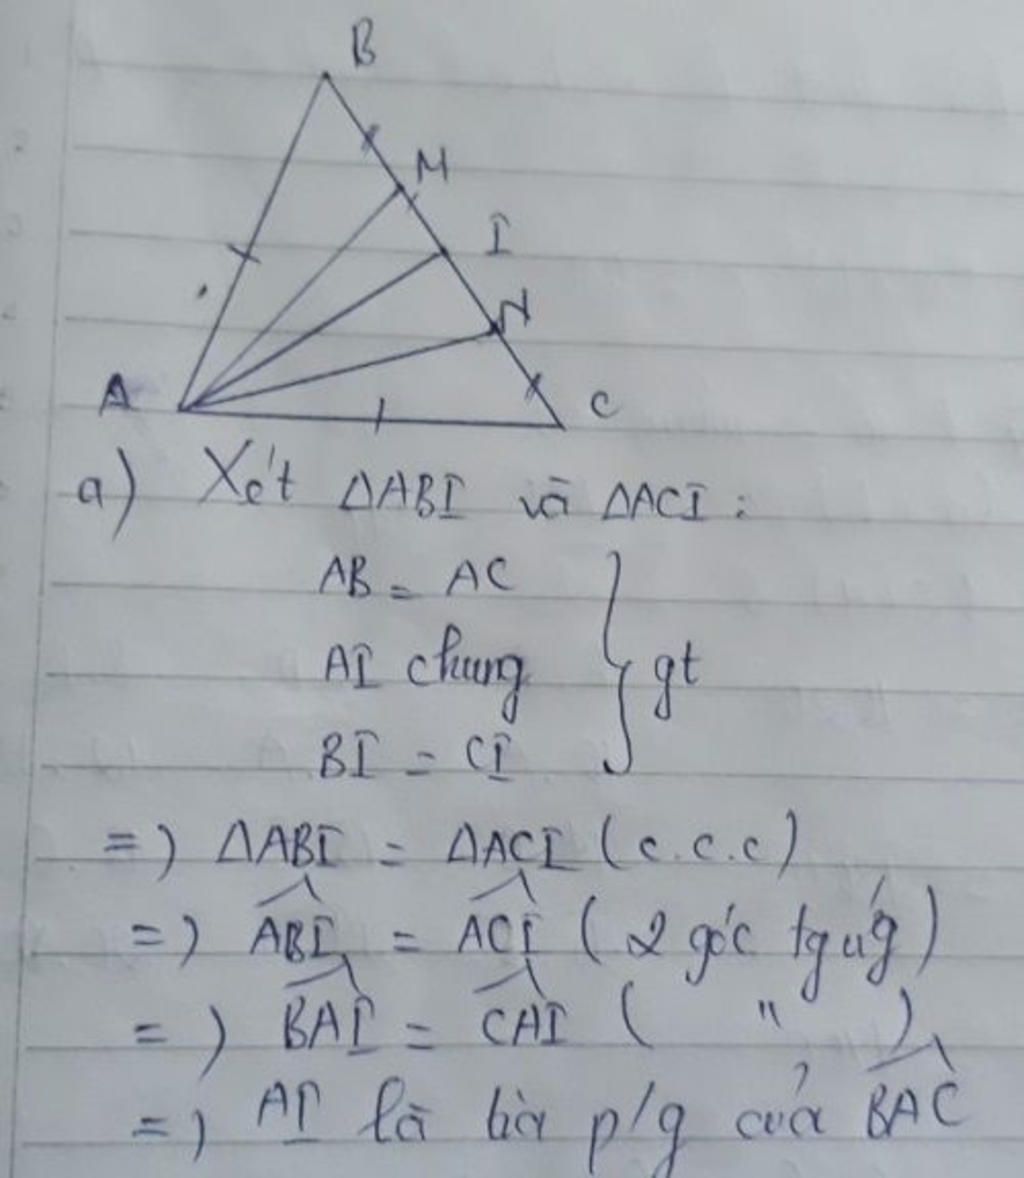 B
M
I
N
A
C
a) Xét ΔABI và ΔACI :
AB = AC
AI chung } gt
BI = CI
=) ΔABI = ΔACI (c.c.c)
=) \widehat{ABI} = \widehat{ACI} (2 góc tg ứg)
=) \widehat{BAI} = \widehat{CAI} ( " )
=) AI là tia p/g của \widehat{BAC}